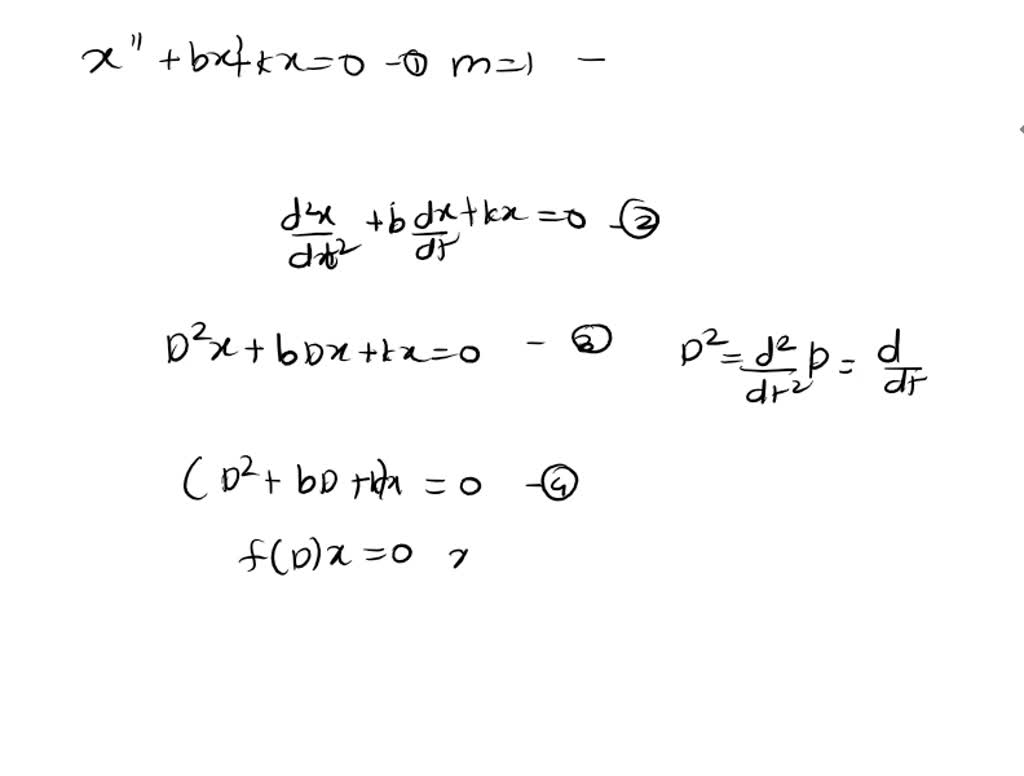 x'' + bx' + kx = 0 - ① m = 1 -
d²x/dt² + b dx/dt + kx = 0 - ②
D²x + bDx + kx = 0 - ③ D² = d²/dt² D = d/dt
(D² + bD + k)x = 0 - ④
f(D)x = 0 x